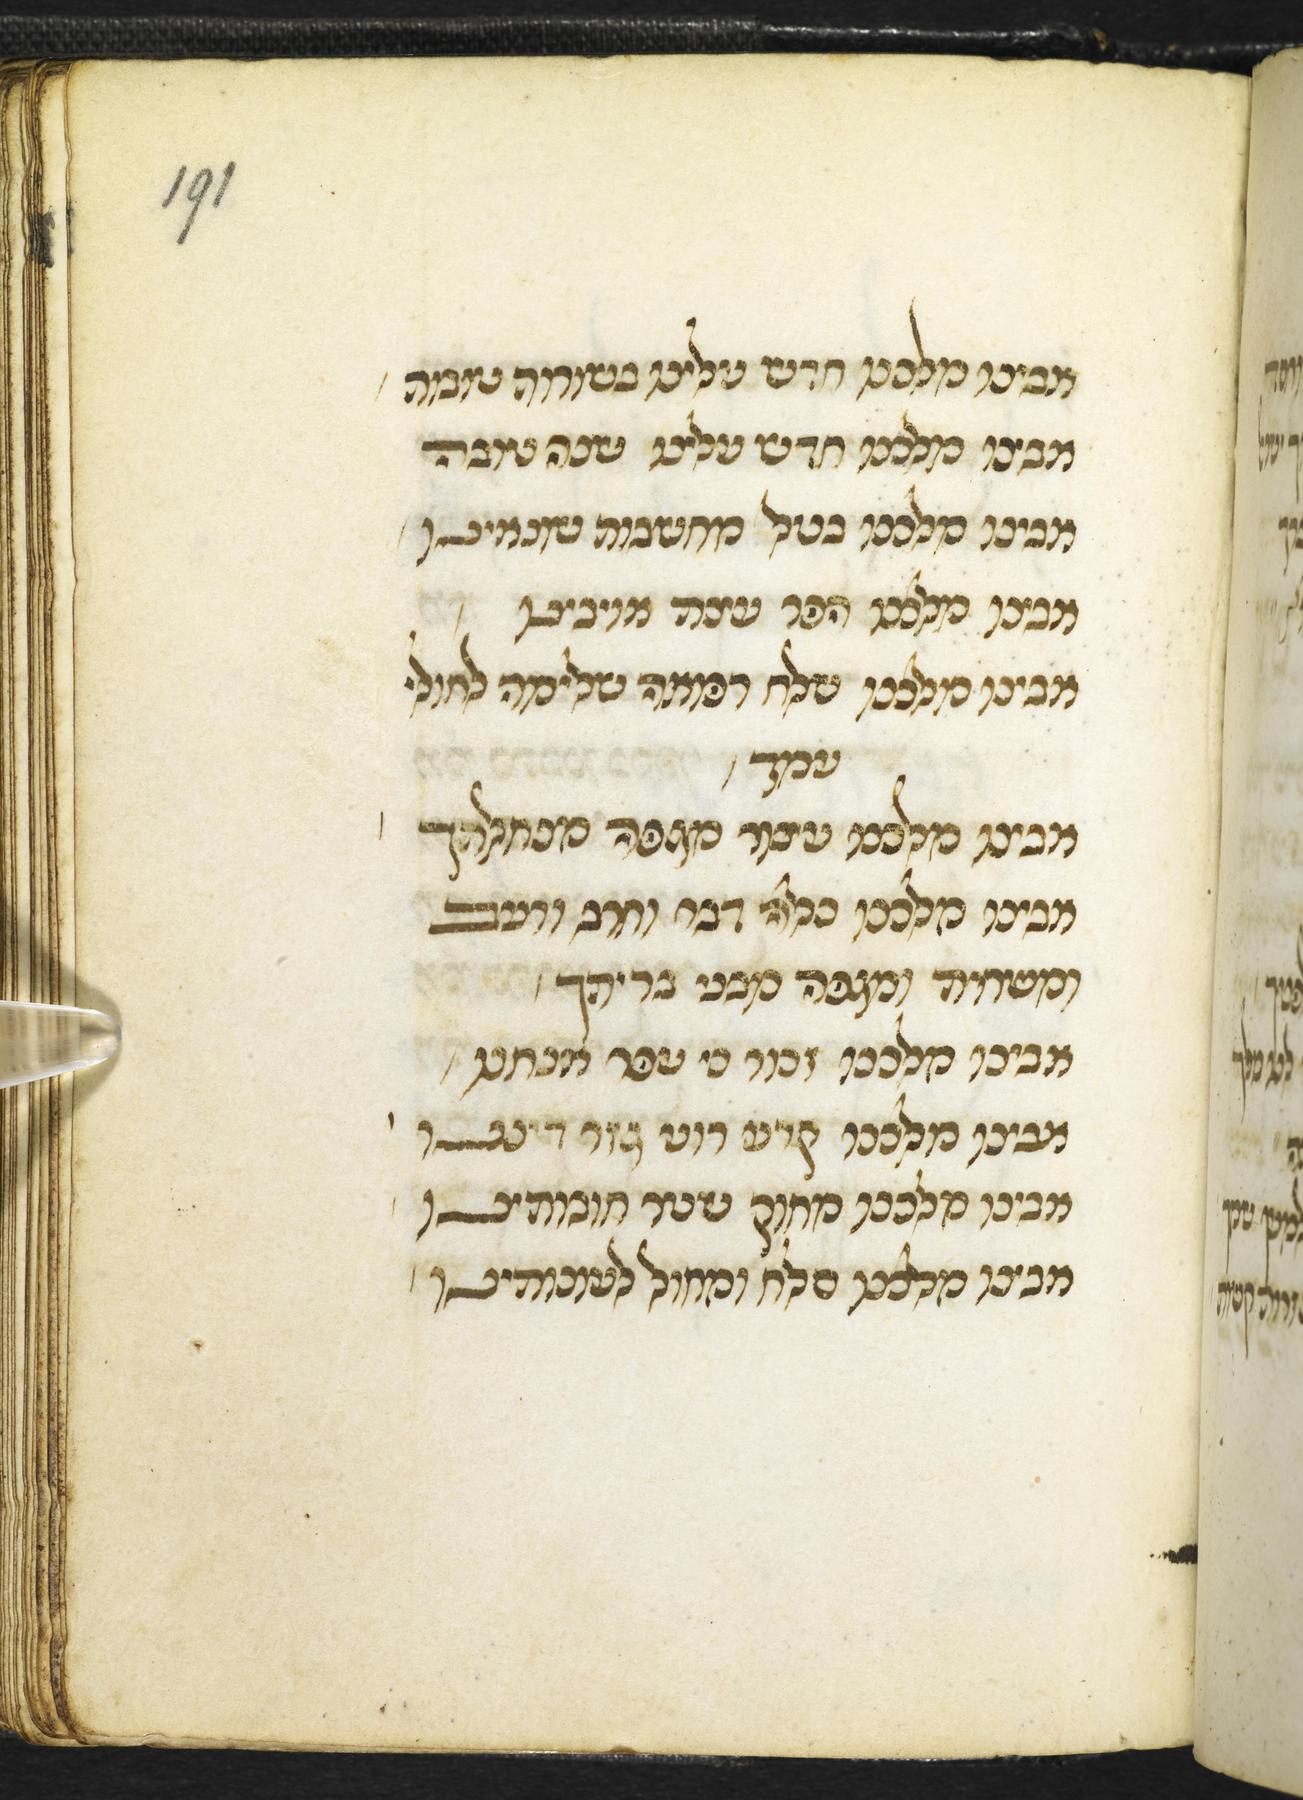 191
אבינו מלכנו חדש עלינו בשורות טובות
אבינו מלכנו חדש עלינו שנה טובה
אבינו מלכנו בטל מחשבות שונאינו
אבינו מלכנו הפר עצת אויבינו
אבינו מלכנו שלח רפואה שלימה לחולי
עמך
אבינו מלכנו עצור מגפה מנחלתך
אבינו מלכנו כלה דבר וחרב ורעב
ומשחית ומגפה מבני בריתך
אבינו מלכנו זכור כי עפר אנחנו
אבינו מלכנו קרע רוע גזר דיננו
אבינו מלכנו מחוק שטר חובותינו
אבינו מלכנו סלח ומחול לעונותינו